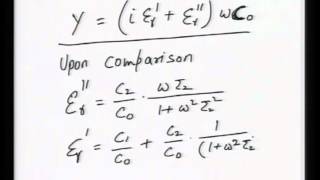 Y = (i εr' + εr'') ωC₀
Upon comparison
εr'' = C₂/C₀ · ωτ₂/(1+ω²τ₂²)
εr' = C₁/C₀ + C₂/C₀ · 1/(1+ω²τ₂